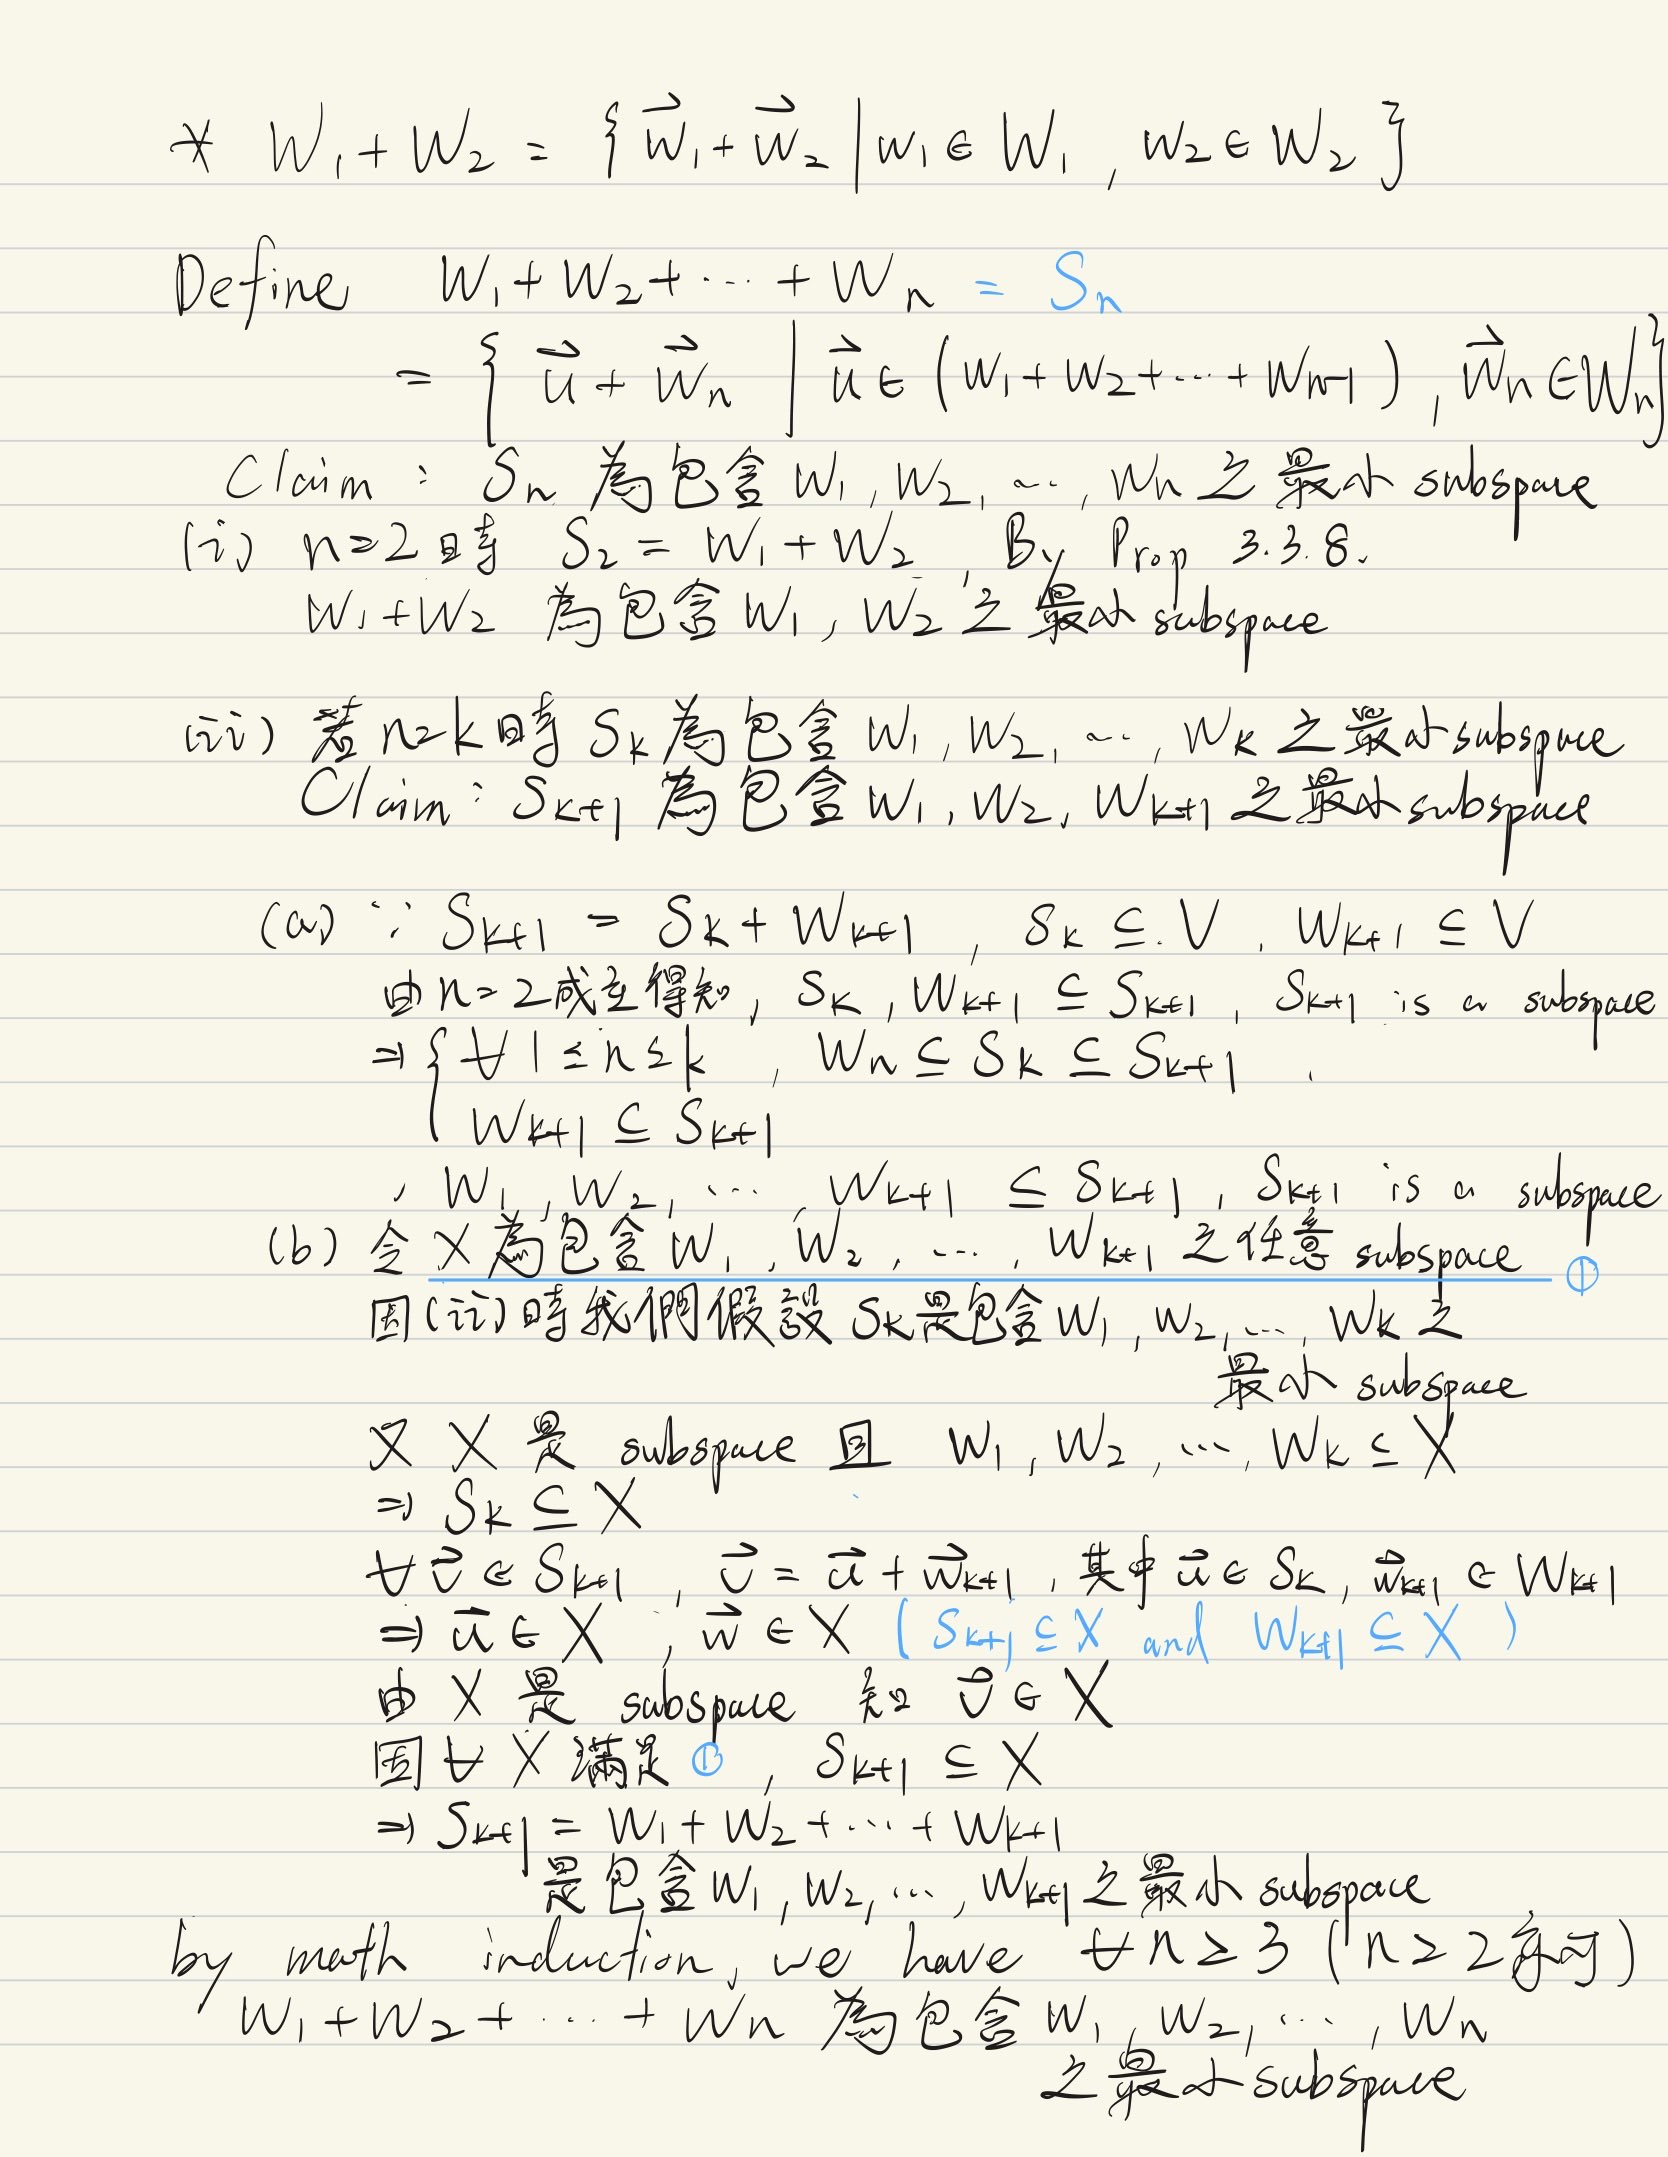 * W₁ + W₂ = { w⃗₁ + w⃗₂ | w₁ ∈ W₁ , w₂ ∈ W₂ }
Define W₁ + W₂ + ⋯ + Wₙ = Sₙ
= { u⃗ + w⃗ₙ | u⃗ ∈ (W₁ + W₂ + ⋯ + Wₙ₋₁) , w⃗ₙ ∈ Wₙ }
Claim : Sₙ 為包含 W₁ , W₂ , ⋯ , Wₙ 之最小 subspace
(i) n=2 時 S₂ = W₁ + W₂ , By Prop 3.3.8.
W₁ + W₂ 為包含 W₁ , W₂ 之最小 subspace
(ii) 若 n=k 時 Sₖ 為包含 W₁ , W₂ , ⋯ , Wₖ 之最小 subspace
Claim : Sₖ₊₁ 為包含 W₁ , W₂ , Wₖ₊₁ 之最小 subspace
(a) ∵ Sₖ₊₁ = Sₖ + Wₖ₊₁ , Sₖ ⊆ V , Wₖ₊₁ ⊆ V
由 n=2 成立得知 , Sₖ , Wₖ₊₁ ⊆ Sₖ₊₁ , Sₖ₊₁ is a subspace
⇒ { ∀ 1 ≤ n ≤ k , Wₙ ⊆ Sₖ ⊆ Sₖ₊₁
Wₖ₊₁ ⊆ Sₖ₊₁
, W₁ , W₂ , ⋯ , Wₖ₊₁ ⊆ Sₖ₊₁ , Sₖ₊₁ is a subspace
(b) 令 X 為包含 W₁ , W₂ , ⋯ , Wₖ₊₁ 之任意 subspace ①
因 (ii) 時我們假設 Sₖ 是包含 W₁ , W₂ , ⋯ , Wₖ 之
最小 subspace
又 X 是 subspace 且 W₁ , W₂ , ⋯ , Wₖ ⊆ X
⇒ Sₖ ⊆ X
∀ v⃗ ∈ Sₖ₊₁ , v⃗ = u⃗ + w⃗ₖ₊₁ , 其中 u⃗ ∈ Sₖ , w⃗ₖ₊₁ ∈ Wₖ₊₁
⇒ u⃗ ∈ X , w⃗ ∈ X ( Sₖ₊₁ ⊆ X and Wₖ₊₁ ⊆ X )
由 X 是 subspace 知 v⃗ ∈ X
因 ∀ X 滿足 ① , Sₖ₊₁ ⊆ X
⇒ Sₖ₊₁ = W₁ + W₂ + ⋯ + Wₖ₊₁
是包含 W₁ , W₂ , ⋯ , Wₖ₊₁ 之最小 subspace
by math induction, we have ∀ n ≥ 3 ( n ≥ 2 亦可 )
W₁ + W₂ + ⋯ + Wₙ 為包含 W₁ , W₂ , ⋯ , Wₙ
之最小 subspace